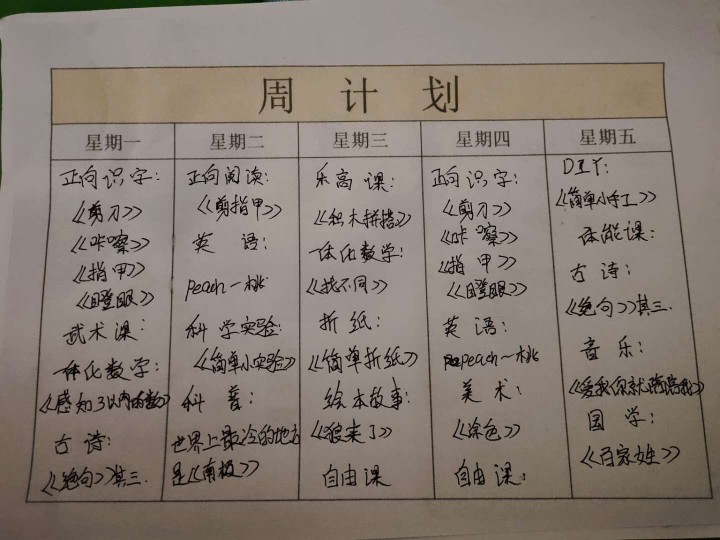 周 计 划
星期一
正向识字：
《剪刀》
《咔嚓》
《指甲》
《瞪眼》
武术课：
一体化数学：
《感知3以内的数》
古诗：
《绝句》其三.
星期二
正向阅读：
《剪指甲》
英语：
peach－桃
科学实验：
《简单小实验》
科普：
世界上最冷的地方
是《南极》
星期三
乐高课：
《积木拼搭》
一体化数学：
《找不同》
折纸：
《简单折纸》
绘本故事：
《狼来了》
自由课
星期四
正向识字：
《剪刀》
《咔嚓》
《指甲》
《瞪眼》
英语：
peach－桃
美术：
《涂色》
自由课：
星期五
DIY：
《简单小手工》
体能课：
古诗：
《绝句》其三.
音乐：
《爱我你就抱抱我》
国学：
《百家姓》